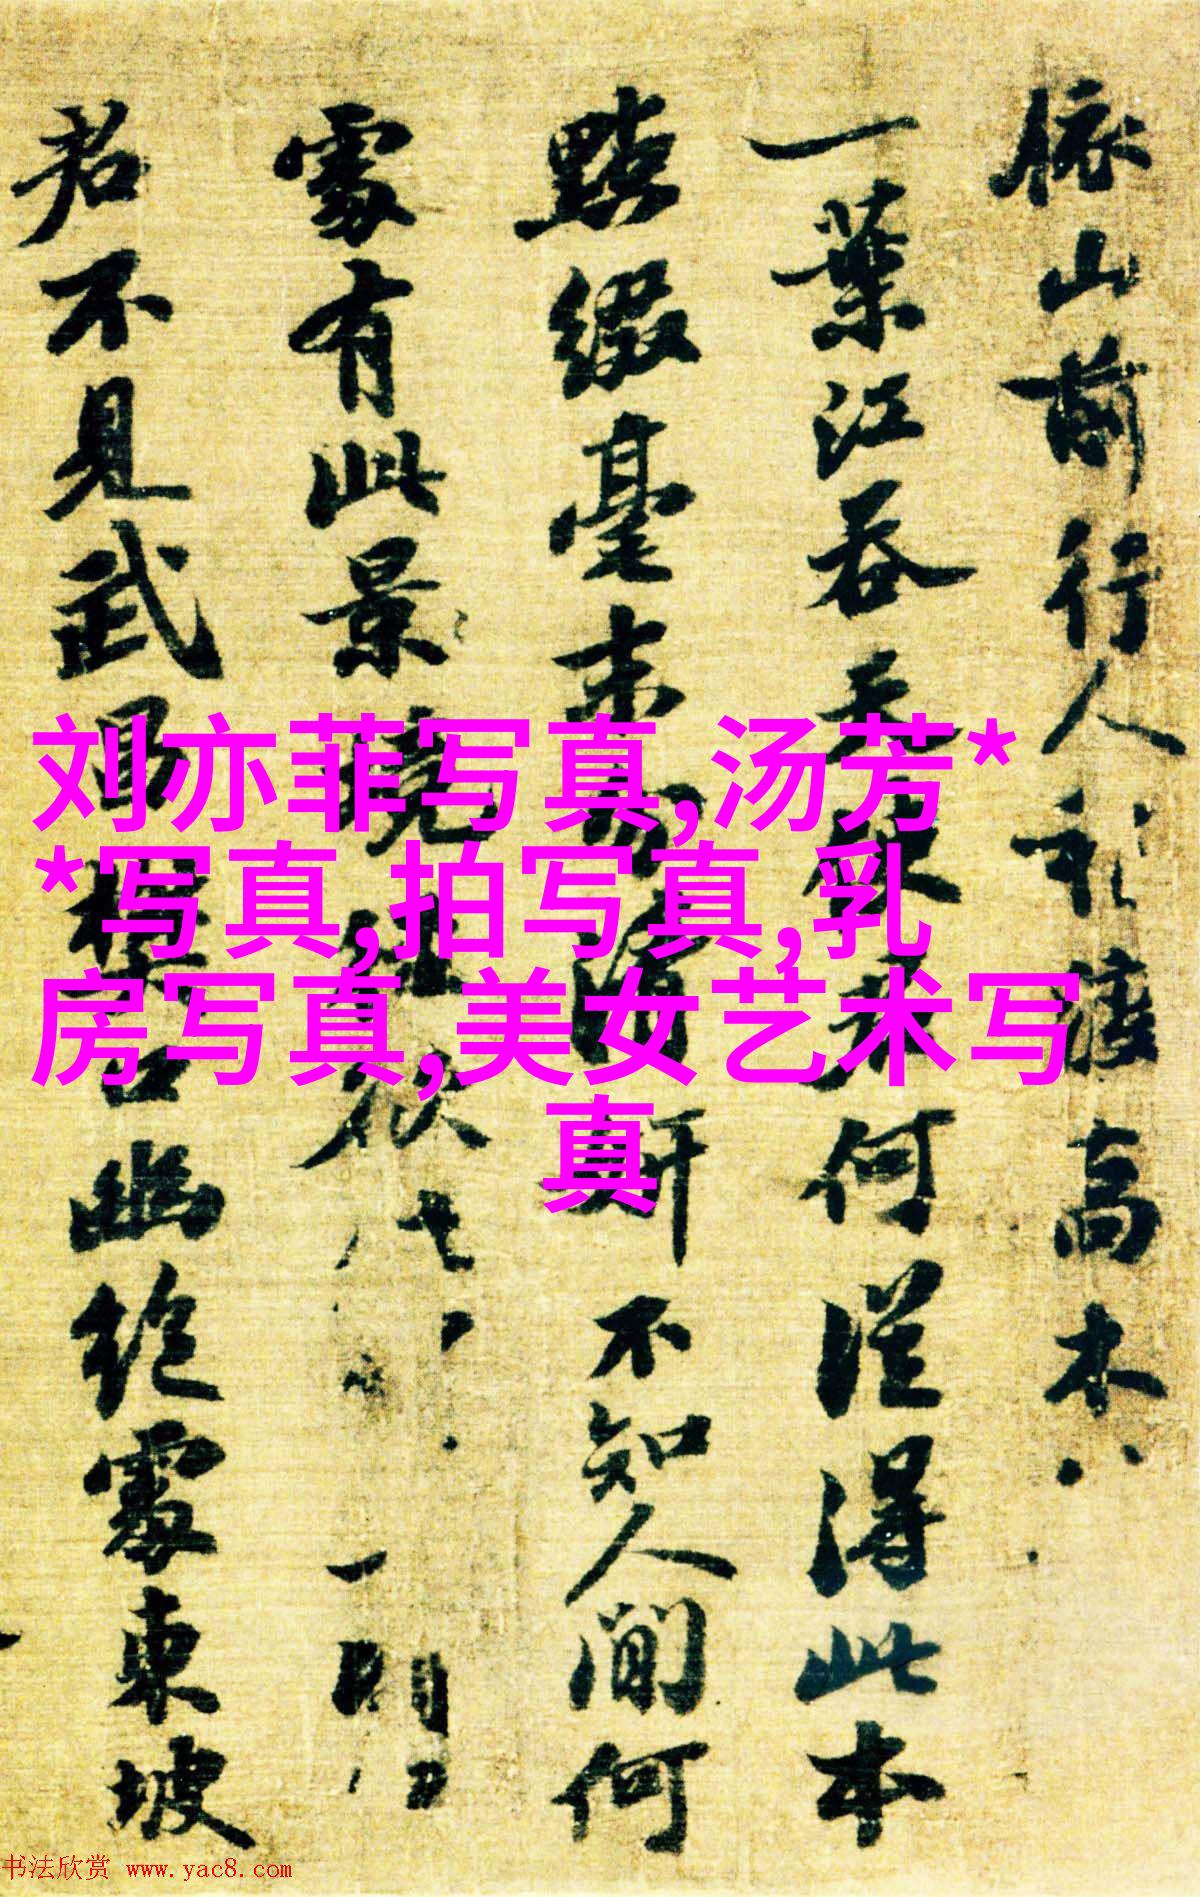 依山前行人渡高木
一葉江吞天使君何從得此本
點綴毫末分清妍不知人間何
處有此景
君不見武昌樊口幽絕處東坡
刘亦菲写真,汤芳*
*写真,拍写真,乳
房写真,美女艺术写
真
书法欣赏 www.yac8.com